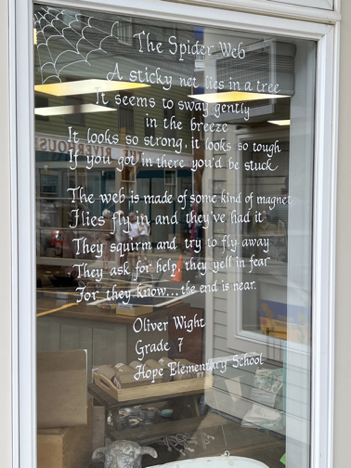 The Spider Web
A sticky net lies in a tree
It seems to sway gently
in the breeze
It looks so strong, it looks so tough
If you got in there you'd be stuck
The web is made of some kind of magnet
Flies fly in and they've had it
They squirm and try to fly away
They ask for help, they yell in fear
For they know...the end is near.
Oliver Wight
Grade 7
Hope Elementary School